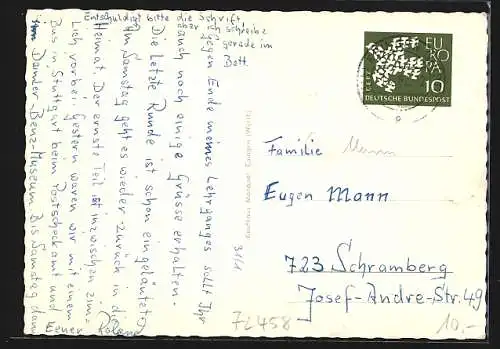 Entschuldigt bitte die Schrift,
aber ich schreibe
gerade im
Bett.
Gegen Ende meines Lehrganges sollt Ihr
auch noch einige Grüsse erhalten.
Die letzte Runde ist schon eingeläutet,
Am Samstag geht es wieder zurück in die
Heimat. Der ernste Teil ist inzwischen ziem-
lich vorbei. Gestern waren wir mit einem
Bus in Stuttgart beim Postscheckamt und
im Daimler-Benz-Museum. Bis Samstag dann
Euer Roland
EUROPA
10
DEUTSCHE BUNDESPOST
Familie
Eugen Mann
723 Schramberg
Josef-Andre-Str. 49
7L458
10,-